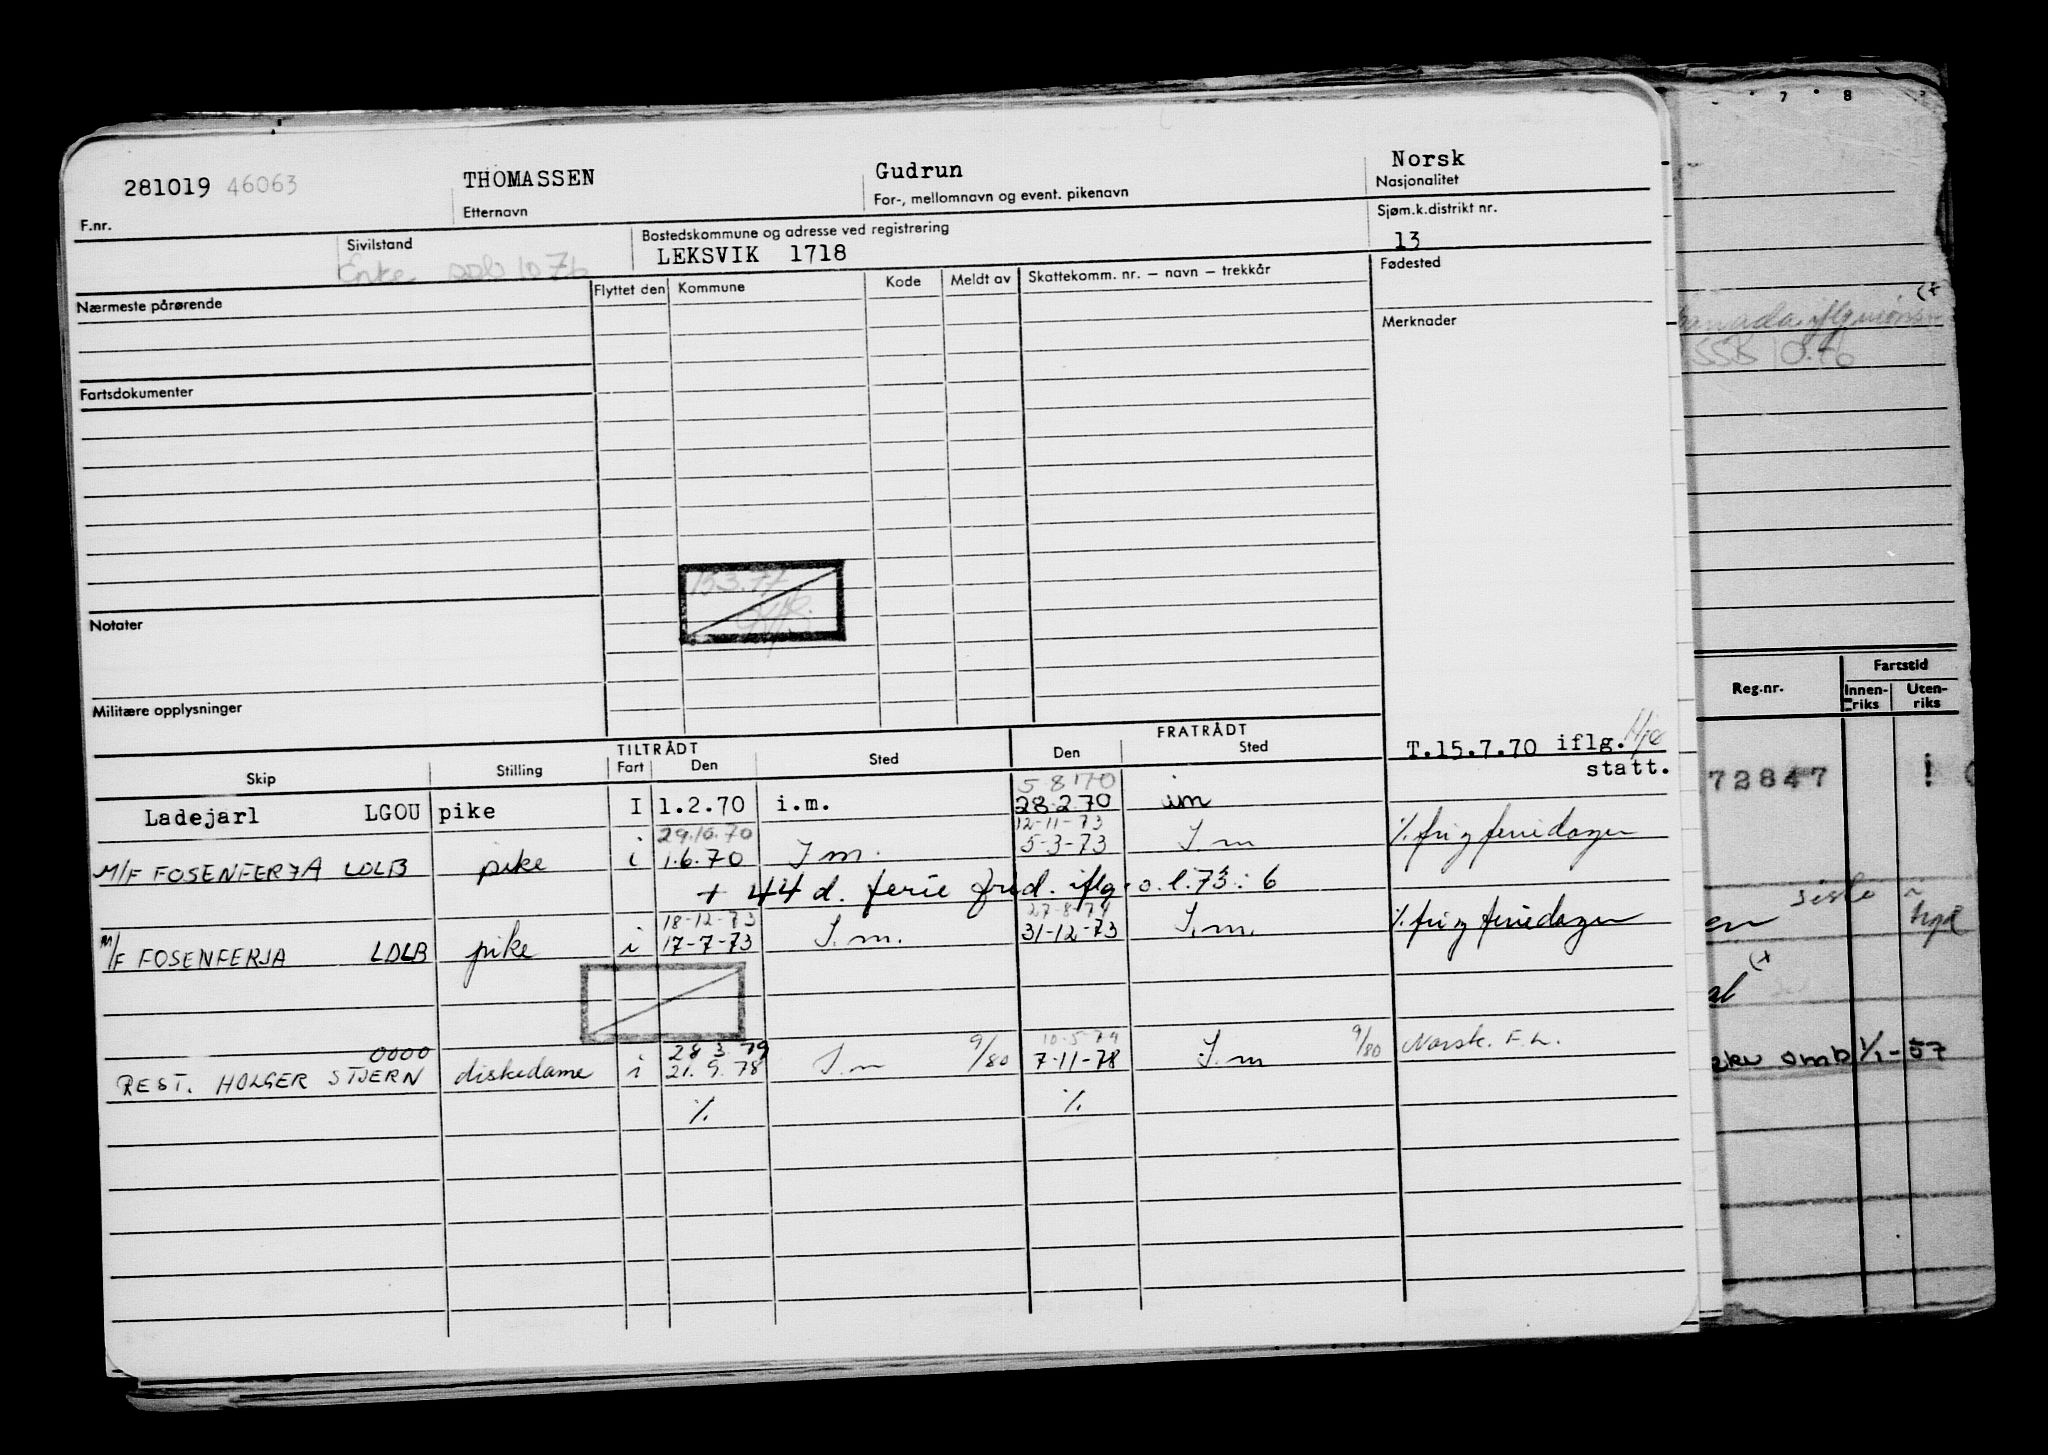 281019 46063 THOMASSEN Gudrun Norsk
F.nr. Etternavn For-, mellomnavn og event. pikenavn Nasjonalitet
Sivilstand Bostedskommune og adresse ved registrering Sjøm.k.distrikt nr.
Enke 10 76 LEKSVIK 1718 13
Nærmeste pårørende Flyttet den Kommune Kode Meldt av Skattekomm. nr. — navn — trekkår Fødested
Merknader
Fartsdokumenter
15.3.77
Notater
Militære opplysninger
TILTRÅDT FRATRÅDT
Skip Stilling Fart Den Sted Den Sted T.15.7.70 iflg.
statt.
5-8 70
Ladejarl LGOU pike I 1.2.70 i.m. 28.2.70 im
29.10.70 12-11-73
M/F FOSENFERJA LDLB pike i 1.6.70 I m. 5-3-73 I m % fri og feriedager
+ 44 d. ferie fred. iflg. o.l. 73: 6
18-12-73 27-8-74
M/F FOSENFERJA LDLB pike i 17-7-73 I.m. 31-12-73 I.m. % fri og feriedager
0000 28 3 79 9/80 10-5-79 9/80 Norsk. F.L.
REST. HOLGER STJERN diskedame i 21.9.78 I.m 7-11-78 I.m
% %
7 8
(+
SSB 10.76
Reg.nr. Fartstid
Innen-riks Uten-riks
72847
siste
en
(+
al
omb 1/1-57